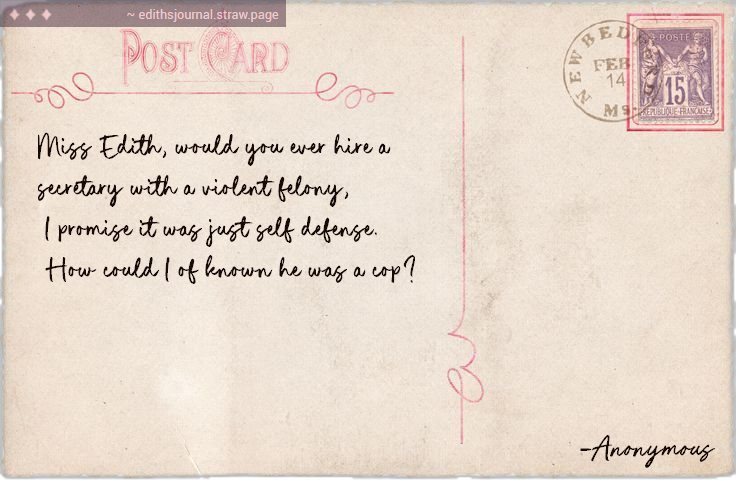 ~ edithsjournal.straw.page
POST CARD
NEW BEDFORD
FEB
14
Ms
POSTE
15
REPUBLIQUE-FRANÇAISE
Miss Edith, would you ever hire a
secretary with a violent felony,
I promise it was just self defense.
How could I of known he was a cop?
-Anonymous